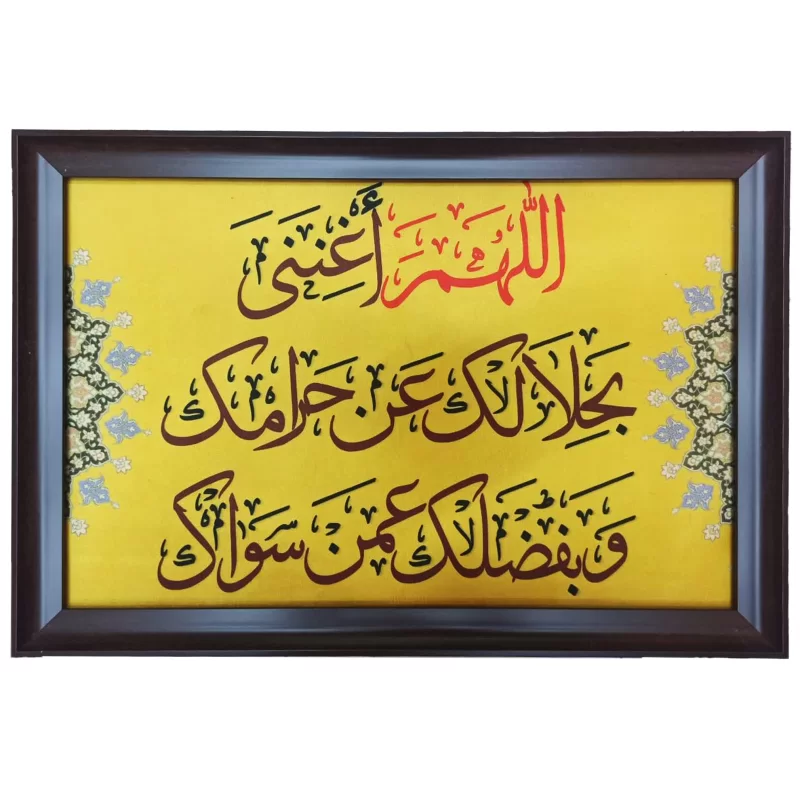 اللهم أغنني
بحلالك عن حرامك
وبفضلك عمن سواك